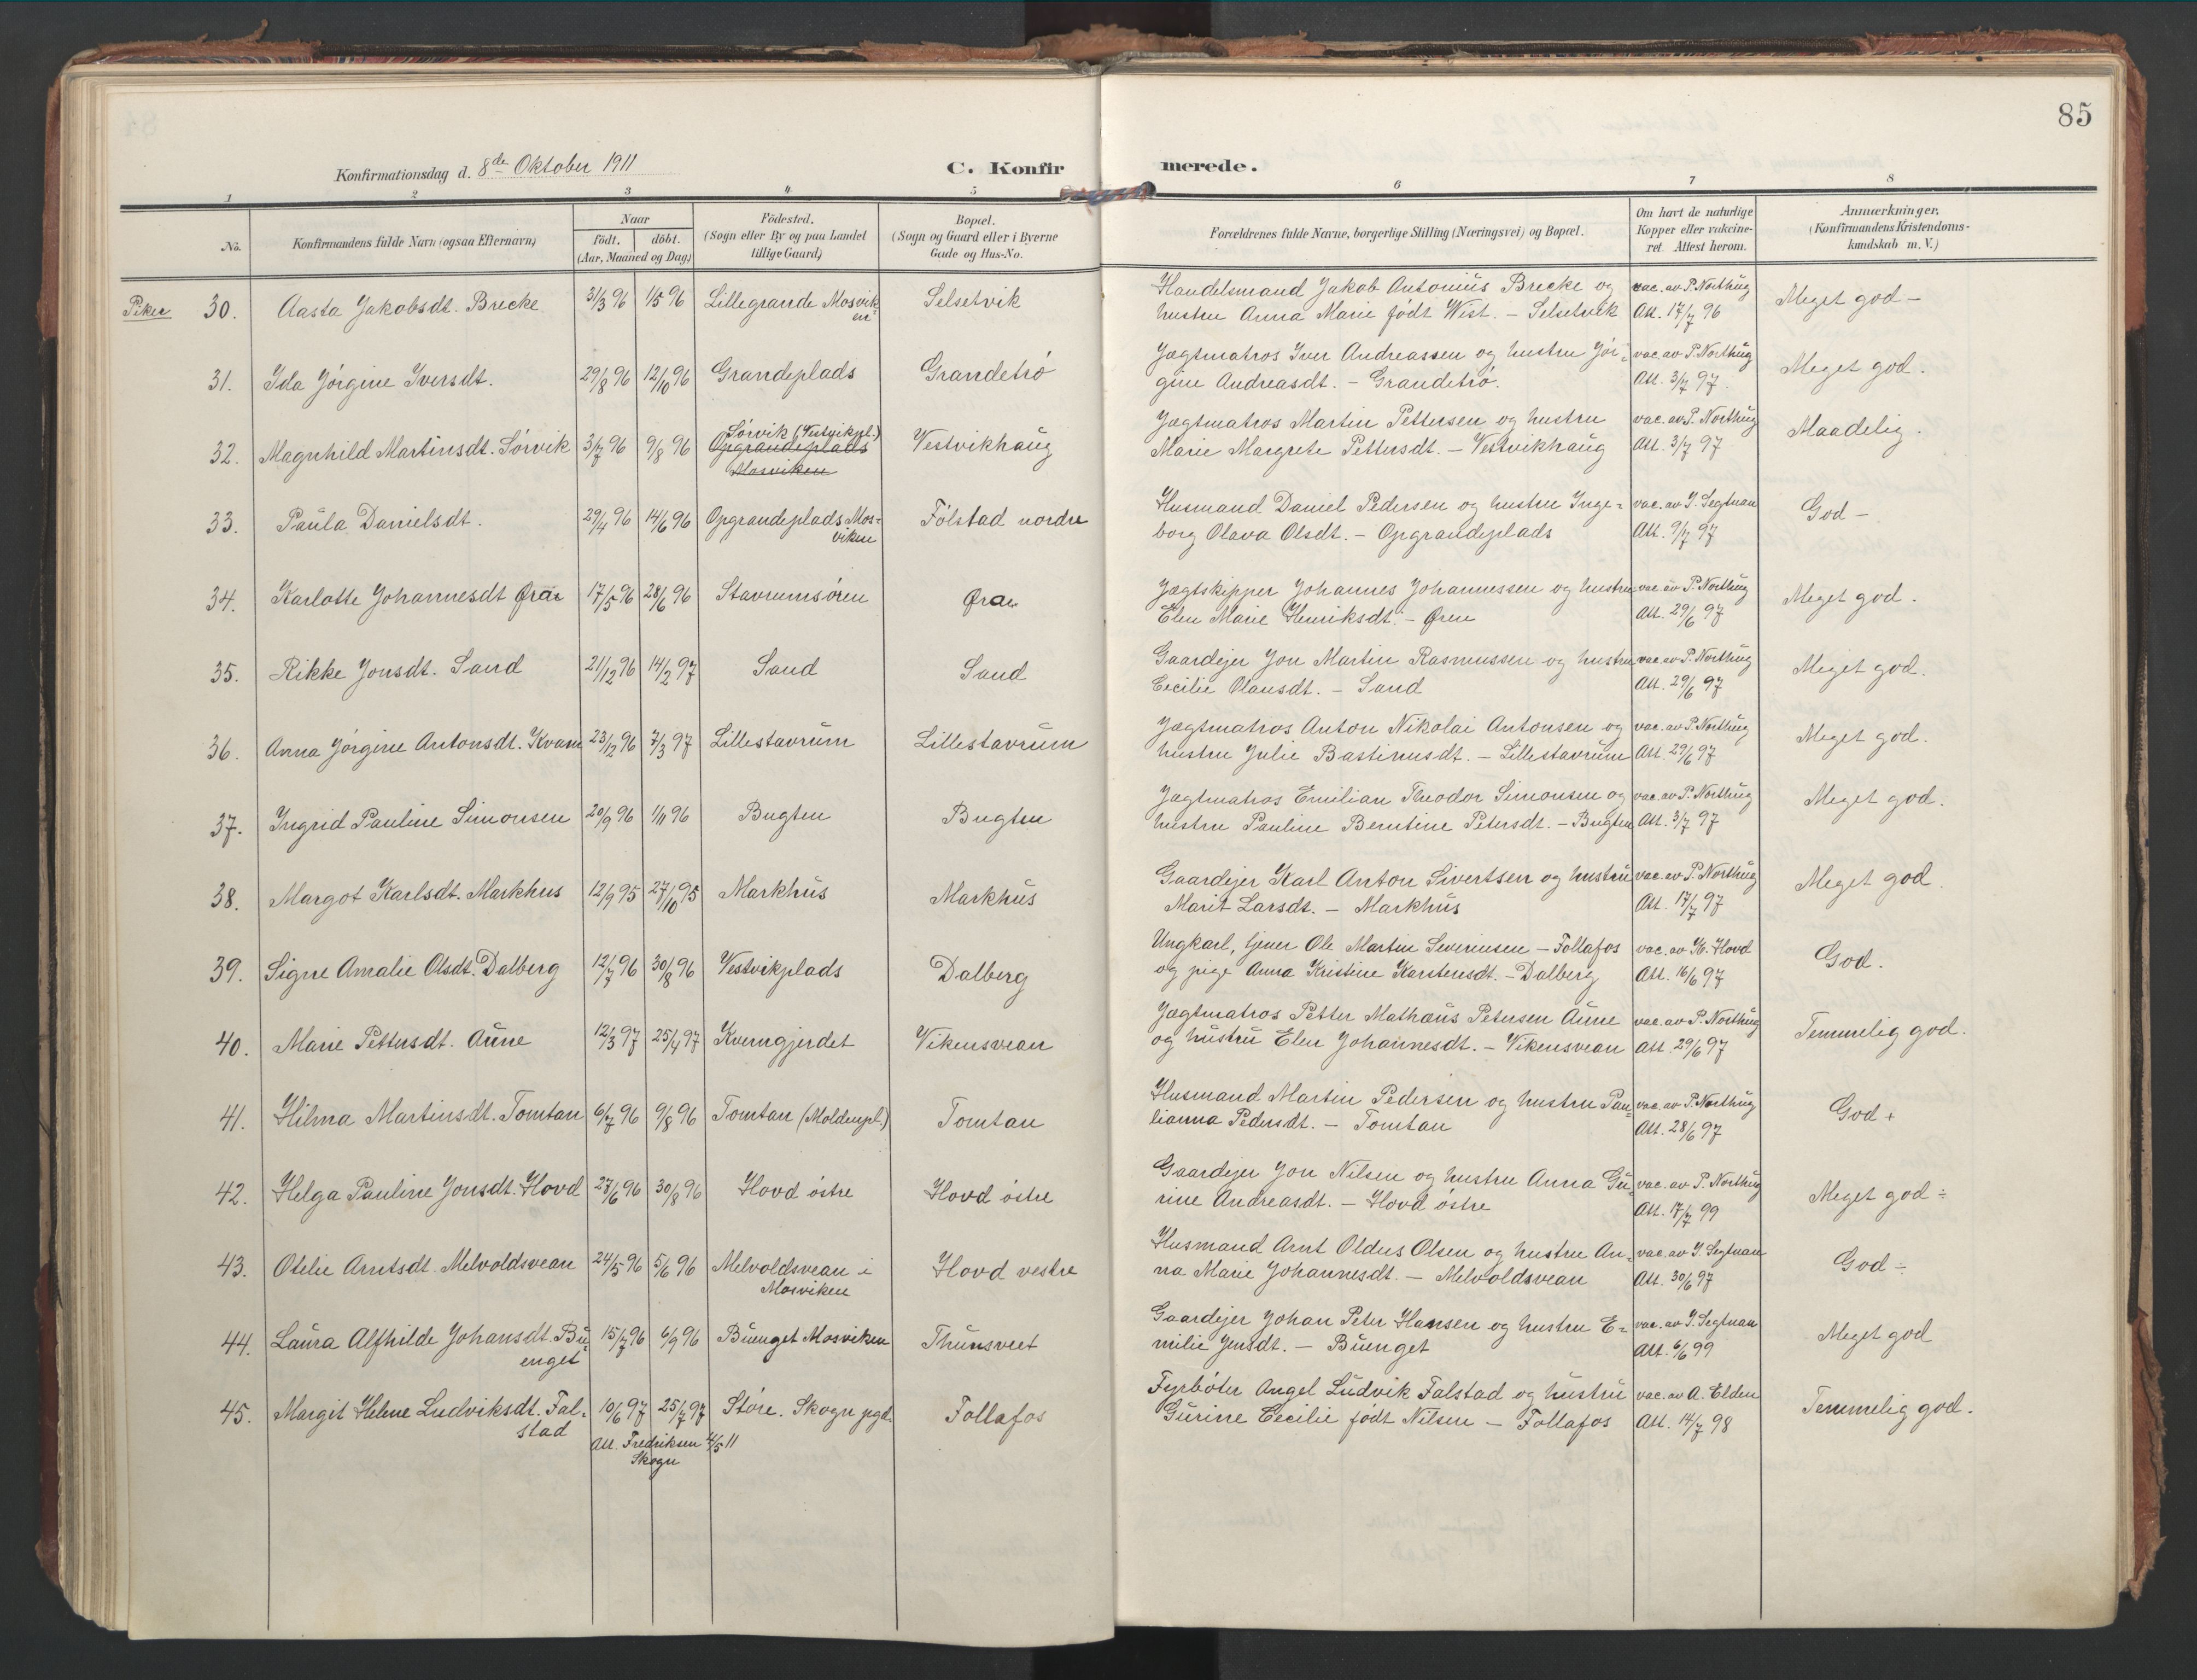 85
Konfirmationsdag d. 8de Oktober 1911 C. Konfirmerede.
1 2 3 4 5 6 7 8
No. Konfirmandens fulde Navn (ogsaa Efternavn) Naar födt. döbt. (Aar, Maaned og Dag) Födested. (Sogn eller By og paa Landet tillige Gaard) Bopæl. (Sogn og Gaard eller i Byerne Gade og Hus-No. Forældrenes fulde Navne, borgerlige Stilling (Næringsvei) og Bopæl. Om havt de naturlige Kopper eller vakcineret. Attest herom. Anmærkninger. (Konfirmandens Kristendomskundskab m. V.)
Piker 30. Aasta Jakobsdt. Brecke 31/3 96 1/5 96 Lillegrande Mosviken Selsetvik Handelsmand Jakob Antonius Brecke og vac. av P. Northug Meget god -
hustru Anna Marie født Wist. - Selsetvik Att. 17/7 96
31. Ida Jörgine Iversdt. 29/8 96 12/10 96 Grandeplads Grandetrö Jægtmatros Iver Andreassen og hustru Jör- vac. av P. Northug Meget god.
gine Andreasdt. - Grandetrö. Att. 3/7 97.
32. Magnhild Martinsdt. Sörvik 3/7 96 9/8 96 Sörvik (Vestvikpl.) Opgrandeplads Mosviken Vestvikhaug Jægtmatros Martin Pettersen og hustru vac. av P. Northug Maadelig.
Marie Margrete Pettersdt. - Vestvikhaug Att. 3/7 97
33. Paula Danielsdt. 29/4 96 14/6 96 Opgrandeplads Mosviken Fölstad nordre Husmand Daniel Pedersen og hustru Inge- vac. av J. Segtnan God -
borg Olava Olsdt. - Opgrandeplads Att. 9/7 97
34. Karlotte Johannesdt Øra 17/5 96 28/6 96 Stavrumsören Øra Jægtskipper Johannes Johannessen og hustru vac. av P. Northug Meget god.
Elen Marie Henriksdt. - Øren Att. 29/6 97
35. Rikke Jonsdt. Sand 21/12 96 14/2 97 Sand Sand Gaardejer Jon Martin Rasmussen og hustru vac. av P. Northug Meget god.
Cecilie Olausdt. - Sand Att. 29/6 97
36. Anna Jörgine Antonsdt. Kvam 23/12 96 7/3 97 Lillestavrum Lillestavrum Jægtmatros Anton Nikolai Antonsen og vac. av P. Northug Meget god.
hustru Julie Bastinusdt. - Lillestavrum Att. 29/6 97
37. Ingrid Pauline Simonsen 20/9 96 1/11 96 Bugten Bugten Jægtmatros Emilian Theodor Simonsen og vac. av P. Northug Meget god.
hustru Pauline Berntine Petersdt. - Bugten Att. 3/7 97
38. Margot Karlsdt. Markhus 12/9 95 27/10 95 Markhus Markhus Gaardejer Karl Anton Sivertsen og hustru vac. av P. Northug Meget god.
Marit Larsdt. - Markhus Att. 17/7 97
39. Signe Amalie Olsdt. Dalberg 12/7 96 30/8 96 Vestvikplads Dalberg Ungkarl, tjener Ole Martin Severinsen - Follafos vac. av K. Hovd God.
og pige Anna Kristine Karstensdt. - Dalberg Att. 16/6 97
40. Marie Pettersdt. Aune 12/3 97 25/4 97 Kverngjerdet Vikensvean Jægtmatros Petter Mathæus Petersen Aune vac. av P. Northug Temmelig god.
og hustru Elen Johannesdt. - Vikensvean Att. 29/6 97
41. Hilma Martinsdt. Tomtan 6/7 96 9/8 96 Tomtan (Moldenpl.) Tomtan Husmand Martin Pedersen og hustru Pau- vac. av P. Northug God +
lianna Pedersdt. - Tomtan Att. 28/6 97
42. Helga Pauline Jonsdt. Hovd 27/6 96 30/8 96 Hovd östre Hovd östre Gaardejer Jon Nilsen og hustru Anna Gu- vac. av P. Northug Meget god ÷
rine Andreasdt. - Hovd östre Att. 17/7 99
43. Otelie Arntsdt. Melvoldsvean 24/5 96 5/6 96 Melvoldsvean i Mosviken Hovd vestre Husmand Arnt Oldus Olsen og hustru An- vac. av J. Segtnan God ÷
na Marie Johannesdt. - Melvoldsvean Att. 30/6 97
44. Laura Alfhilde Johansdt. Buenget 15/7 96 6/9 96 Buenget Mosviken Thunsveet Gaardejer Johan Peter Hansen og hustru E- vac. av J. Segtnan Meget god
milie Jensdt. - Buenget Att. 6/6 99
45. Margit Helene Ludviksdt. Falstad 10/6 97 25/7 97 Störe. Skogn pgd. Follafos Fyrböter Angel Ludvik Falstad og hustru vac. av A. Elden Temmelig god.
Gurine Cecilie født Nilsen - Follafos Att. 14/7 98
Att. Fredriksen 4/5 11
Skogn